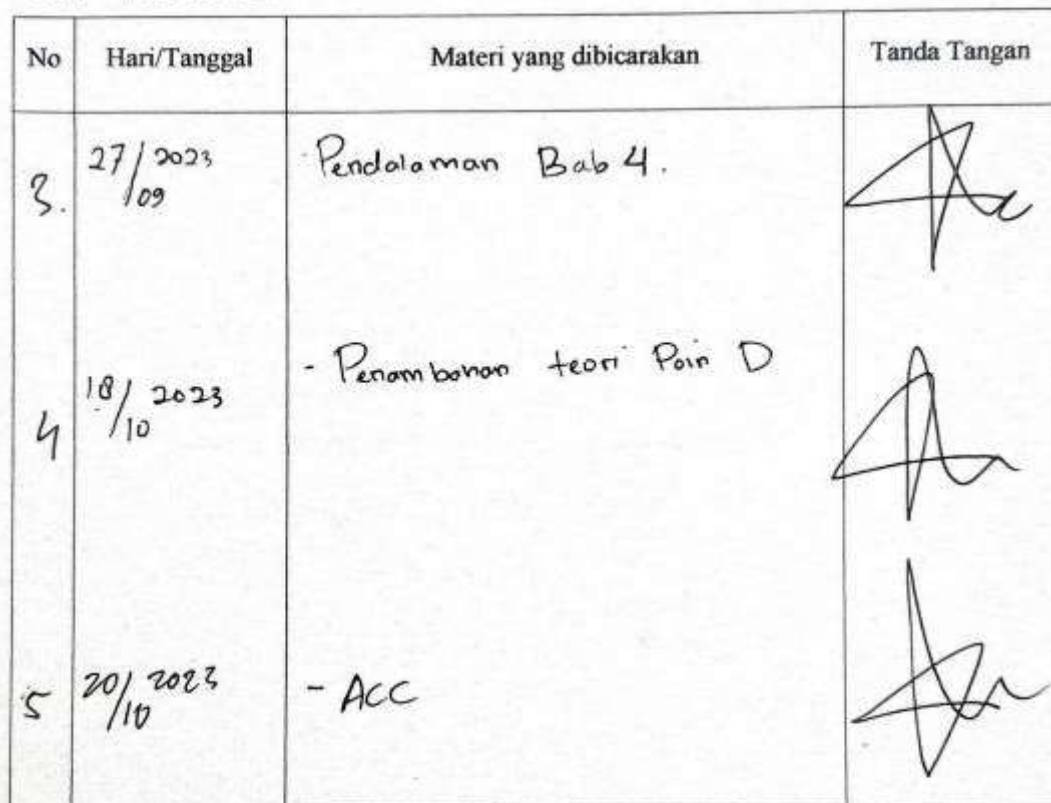 No Hari/Tanggal Materi yang dibicarakan Tanda Tangan
3. 27/09 2023 - Pendalaman Bab 4.
4 18/10 2023 - Penambahan teori Poin D
5 20/10 2023 - ACC